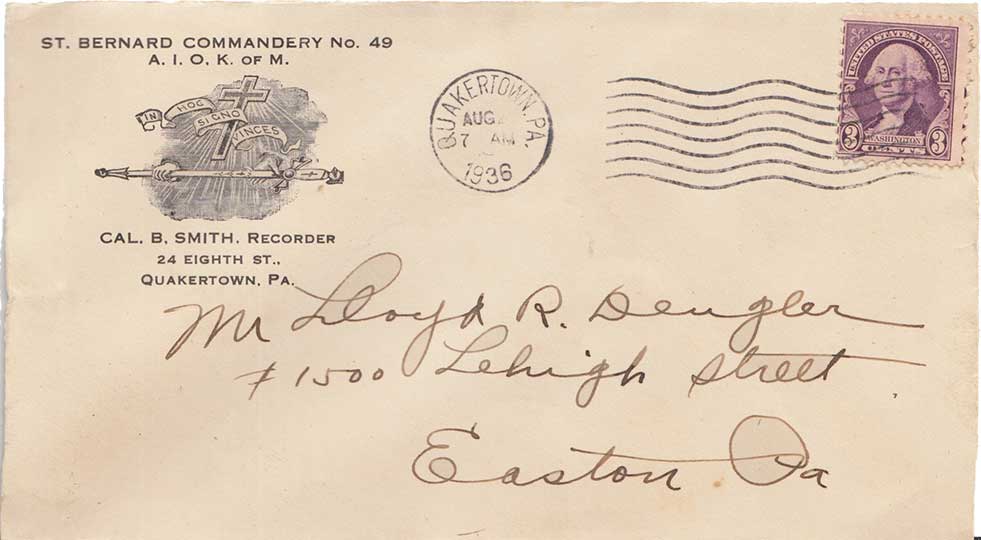 ST. BERNARD COMMANDERY No. 49
A. I. O. K. OF M.
IN HOC SIGNO VINCES
CAL. B. SMITH, RECORDER
24 EIGHTH ST.,
QUAKERTOWN, PA.
QUAKERTOWN, PA.
AUG
7 AM
1936
UNITED STATES POSTAGE
WASHINGTON
3 CENTS 3
Mr Lloyd R. Dengler
# 1500 Lehigh Street
Easton Pa